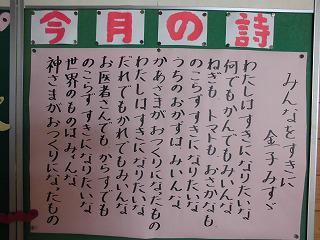 今月の詩
みんなをすきに
金子みすゞ
わたしはすきになりたいな
何でもかんでもみいんな
ねぎも トマトも おさかなも
のこらずすきになりたいな
うちのおかずは みいんな
かあさまがおつくりになったもの
わたしはすきになりたいな
だれでもかれでもみいんな
お医者さんでも からすでも
のこらずすきになりたいな
世界のものはみィんな
神さまがおつくりになったもの